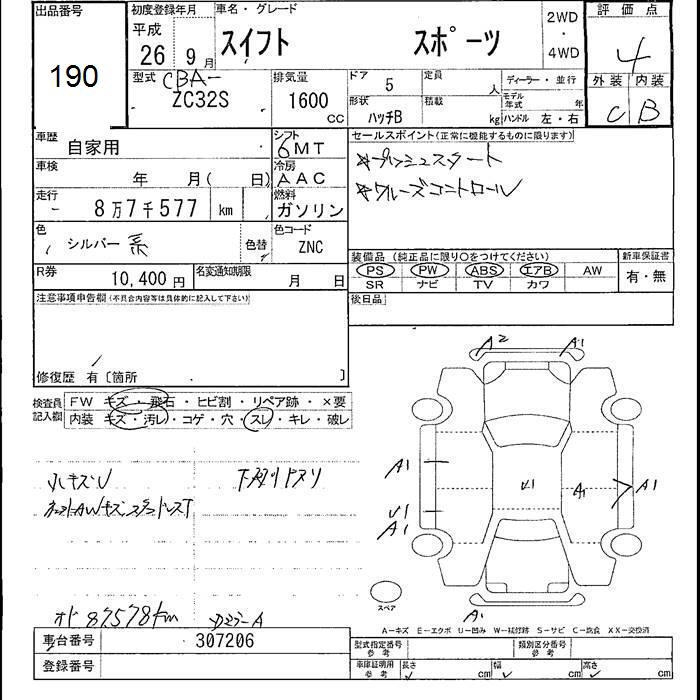 出品番号
190
初度登録年月
平成
26 9月
車名・グレード
スイフト スポーツ
2WD
・
4WD
評価点
4
外装 内装
C B
型式
CBA-
ZC32S
排気量
1600
CC
ドア
5
定員
人
ディーラー・並行
形状
ハッチB
積載
kg
モデル
年式
年
ハンドル 左・右
車歴
自家用
シフト
6MT
車検
年 月( 日)
冷房
AAC
走行
8万7千577 km
燃料
ガソリン
色
シルバー系
色替
色コード
ZNC
R券
10,400円
名変通知期限
月 日
セールスポイント(正常に機能するものに限ります)
*プッシュスタート
*クルーズコントロール
装備品 (純正品に限り○をつけてください)
PS PW ABS エアB AW
SR ナビ TV カワ
新車保証書
有・無
後日品
注意事項申告欄(不具合内容等は具体的に記入して下さい)
修復歴 有〔箇所 〕
検査員
記入欄
FW キズ・飛石・ヒビ割・リペア跡・×要
内装 キズ・汚レ・コゲ・穴・スレ・キレ・破レ
小キズU
下廻りトヌリ
オド 87578km
A2 A1
A1
U1
A1
U1
A1
A1
A1
スペア
A－キズ E－エクボ U－凹み W－補修跡 S－サビ C－腐食 XX－交換済
車台番号
307206
登録番号
型式指定番号
参考
類別区分番号
参考
車庫証明用
参考
長さ
cm
幅
cm
高さ
cm